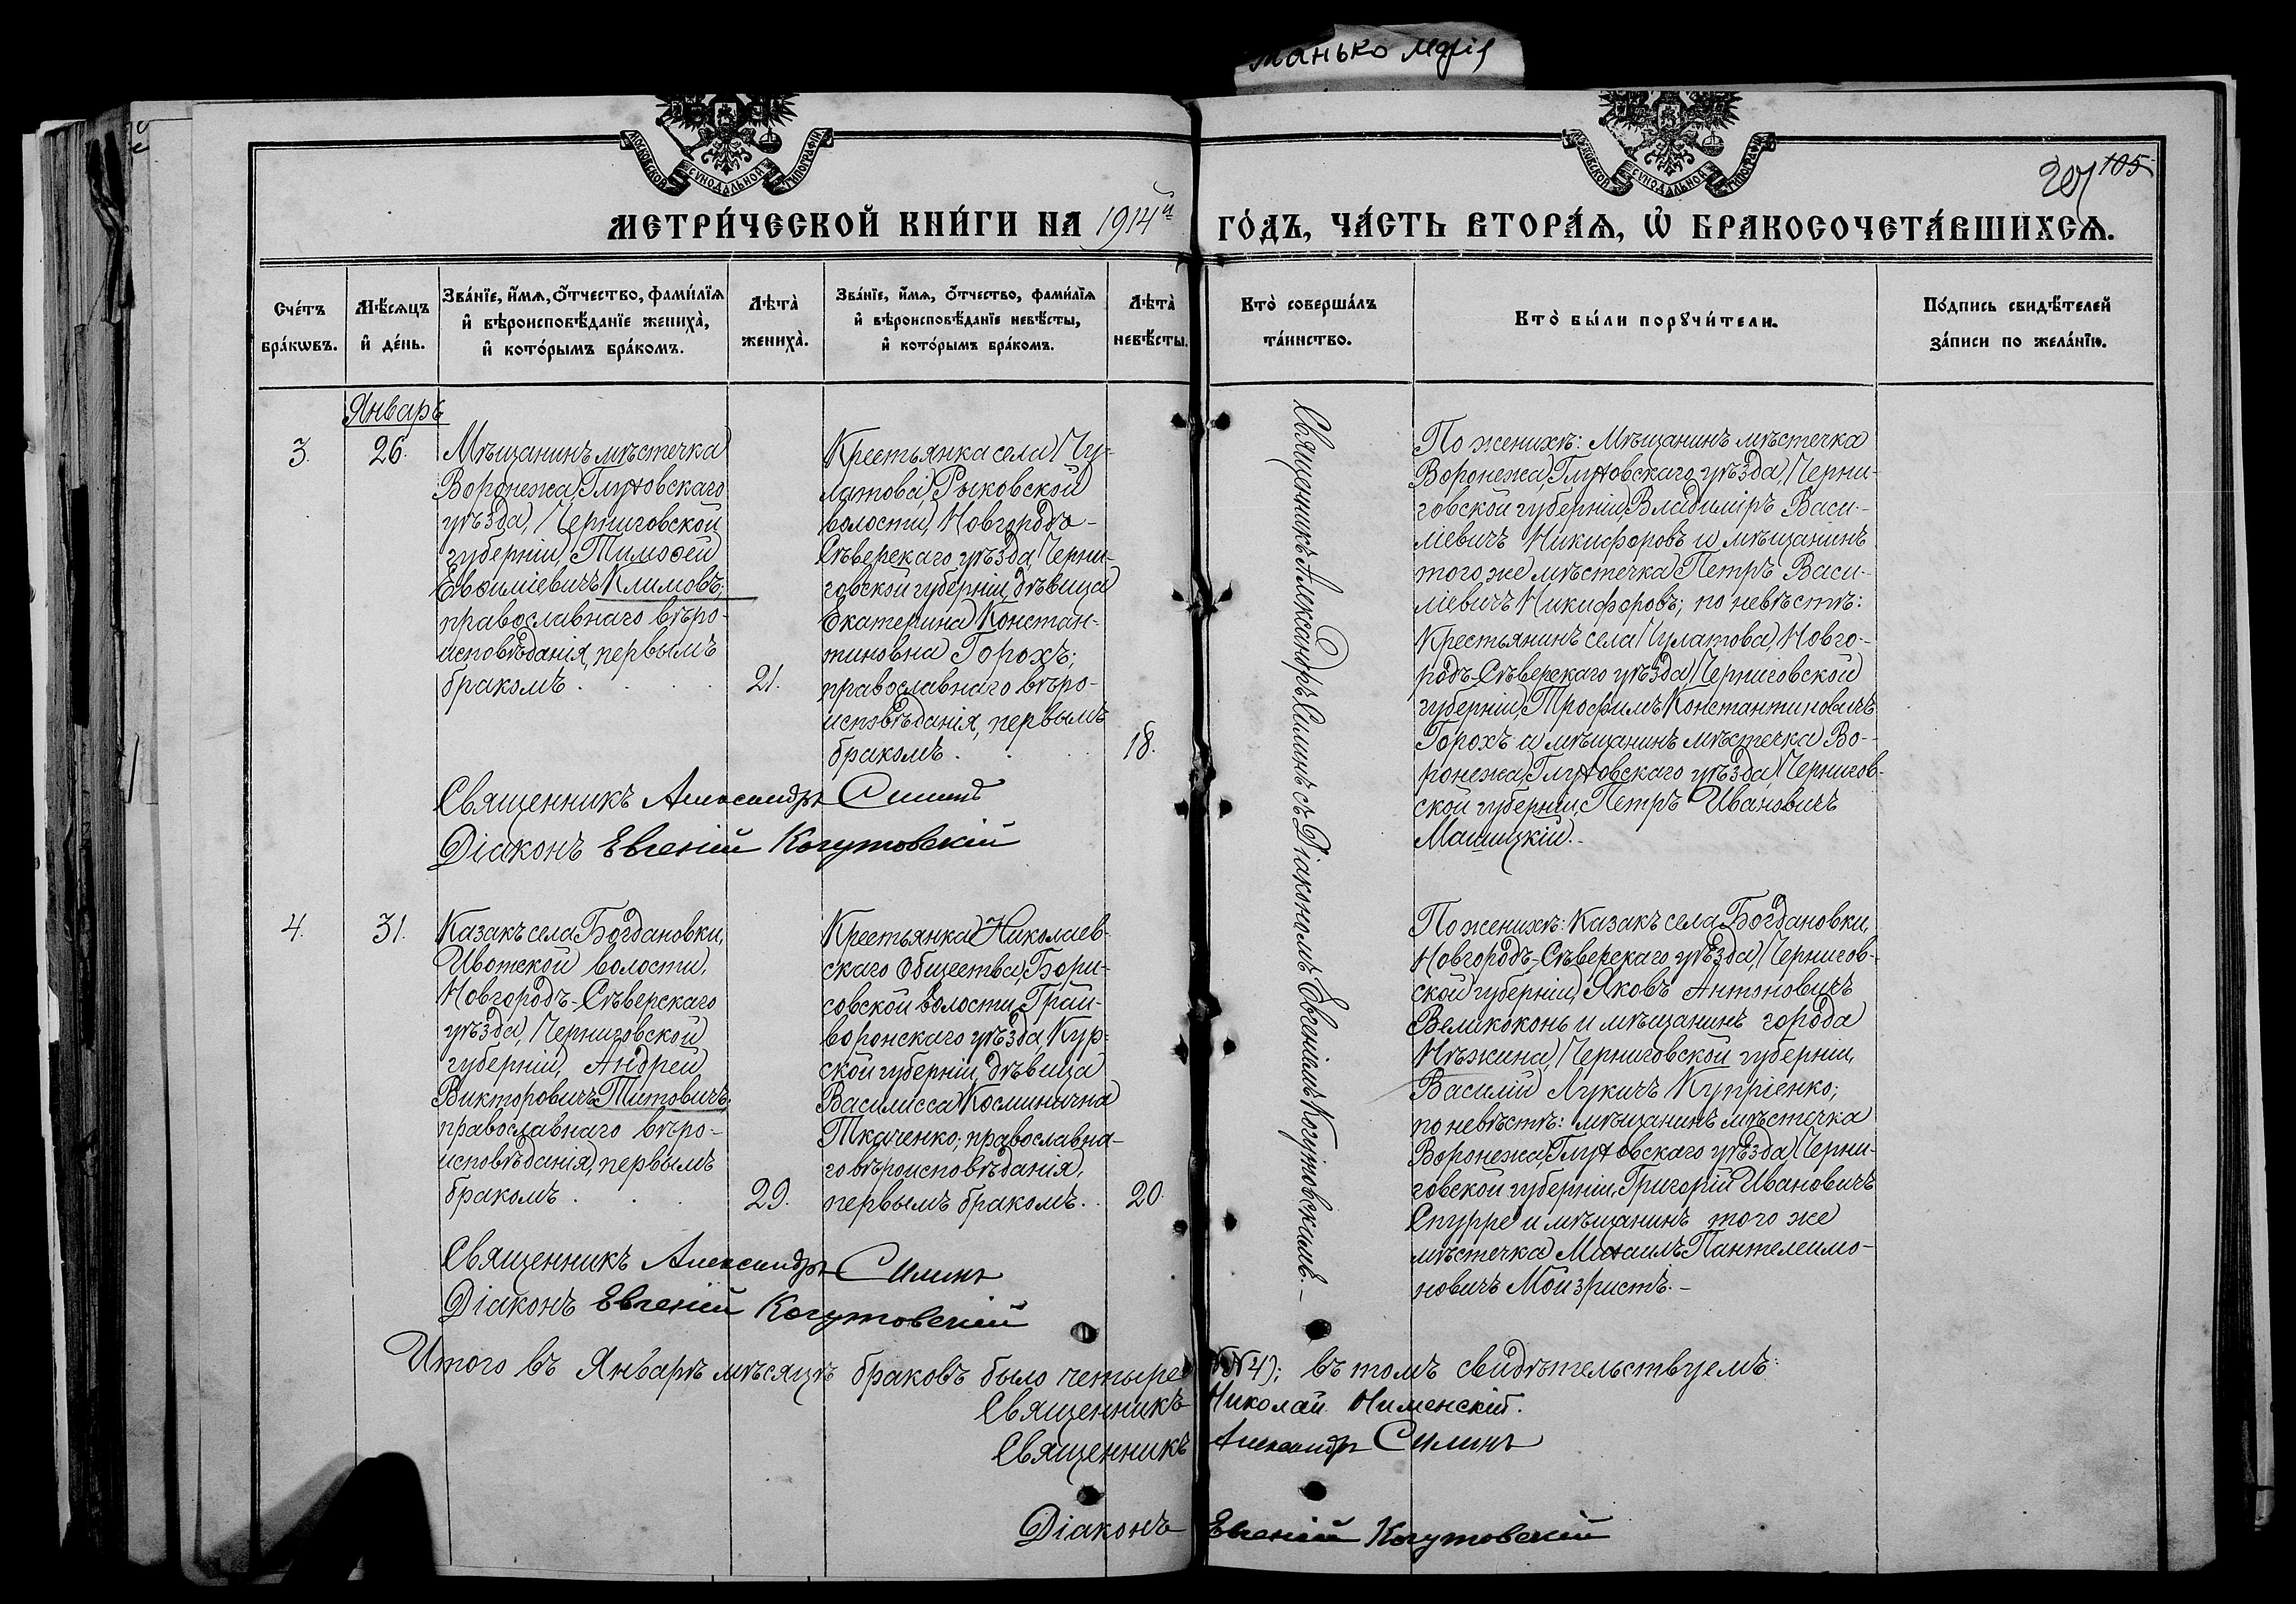 Манько Марія
207 105
МЕТРИ́ЧЕСКОЙ КНИ́ГИ НА 1914й ГО́ДЪ, ЧА́СТЬ ВТОРА́Ѧ, Ѡ҆ БРАКОСОЧЕТА́ВШИХСѦ.
Сче́тъ бра́кѡвъ.
Мѣ́сѧцъ и҆ де́нь.
Зва́нїе, и҆́мѧ, ѻ҆́тчество, фами́лїѧ и҆ вѣроисповѣ́данїе жениха̀, и҆ кото́рымъ бра́комъ.
Лѣта̀ жениха̀.
Зва́нїе, и҆́мѧ, ѻ҆́тчество, фами́лїѧ и҆ вѣроисповѣ́данїе невѣ́сты, и҆ кото́рымъ бра́комъ.
Лѣта̀ невѣ́сты.
Кто̀ соверша́лъ та́инство.
Кто̀ бы́ли порꙋчи́тели.
По́дпись свидѣ́телей за́писи по жела́нїю.
Январь
3.
26.
Мѣщанинъ мѣстечка
Воронежа, Глуховскаго
уѣзда, Черниговской
губерніи, Тимоѳей
Евѳиміевичъ Климовъ;
православнаго вѣро-
исповѣданія, первымъ
бракомъ .
21.
Крестьянка села Чу-
латова, Рыковской
волости, Новгородъ-
Сѣверскаго уѣзда, Черни-
говской губерніи, дѣвица
Екатерина Констан-
тиновна Горохъ;
православнаго вѣро-
исповѣданія, первымъ
бракомъ .
18.
Священникъ Александръ Силинъ
Діаконъ Евгеній Когутовскій
Священникъ Александръ Силинъ съ Діакономъ Евгеніемъ Когутовскимъ.-
По женихѣ: Мѣщанинъ мѣстечка
Воронежа, Глуховскаго уѣзда, Черни-
говской губерніи, Владиміръ Васи-
ліевичъ Никифоровъ и мѣщанинъ
того же мѣстечка Петръ Васи-
ліевичъ Никифоровъ; по невѣстѣ:
Крестьянинъ села Чулатова, Новго-
родъ-Сѣверскаго уѣзда, Черниговской
губерніи, Трофимъ Константиновичъ
Горохъ и мѣщанинъ мѣстечка Во-
ронежа, Глуховскаго уѣзда, Чернигов-
ской губерніи, Петръ Ивановичъ
Машицкій.-
4.
31.
Казакъ села Богдановки,
Ивотской волости,
Новгородъ-Сѣверскаго
уѣзда, Черниговской
губерніи, Андрей
Викторовичъ Титовичъ;
православнаго вѣро-
исповѣданія, первымъ
бракомъ .
29.
Крестьянка Николаев-
скаго Общества, Бори-
совской волости, Грай-
воронскаго уѣзда, Кур-
ской губерніи, дѣвица
Василисса Косминична
Ткаченко; православна-
го вѣроисповѣданія,
первымъ бракомъ.
20.
Священникъ Александръ Силинъ
Діаконъ Евгеній Когутовскій
По женихѣ: Казакъ села Богдановки,
Новгородъ-Сѣверскаго уѣзда, Чернигов-
ской губерніи, Яковъ Антоновичъ
Великоконь и мѣщанинъ города
Нѣжина, Черниговской губерніи,
Василій Лукичъ Купріенко;
по невѣстѣ: мѣщанинъ мѣстечка
Воронежа, Глуховскаго уѣзда, Черни-
говской губерніи, Григорій Ивановичъ
Спурре и мѣщанинъ того же
мѣстечка Михаилъ Пантелеимо-
новичъ Мойзристъ.-
Итого въ Январѣ мѣсяцѣ браковъ было четыре (№ 4); въ томъ свидѣтельствуемъ:
Священникъ Николай Нименскій.
Священникъ Александръ Силинъ
Діаконъ Евгеній Когутовскій